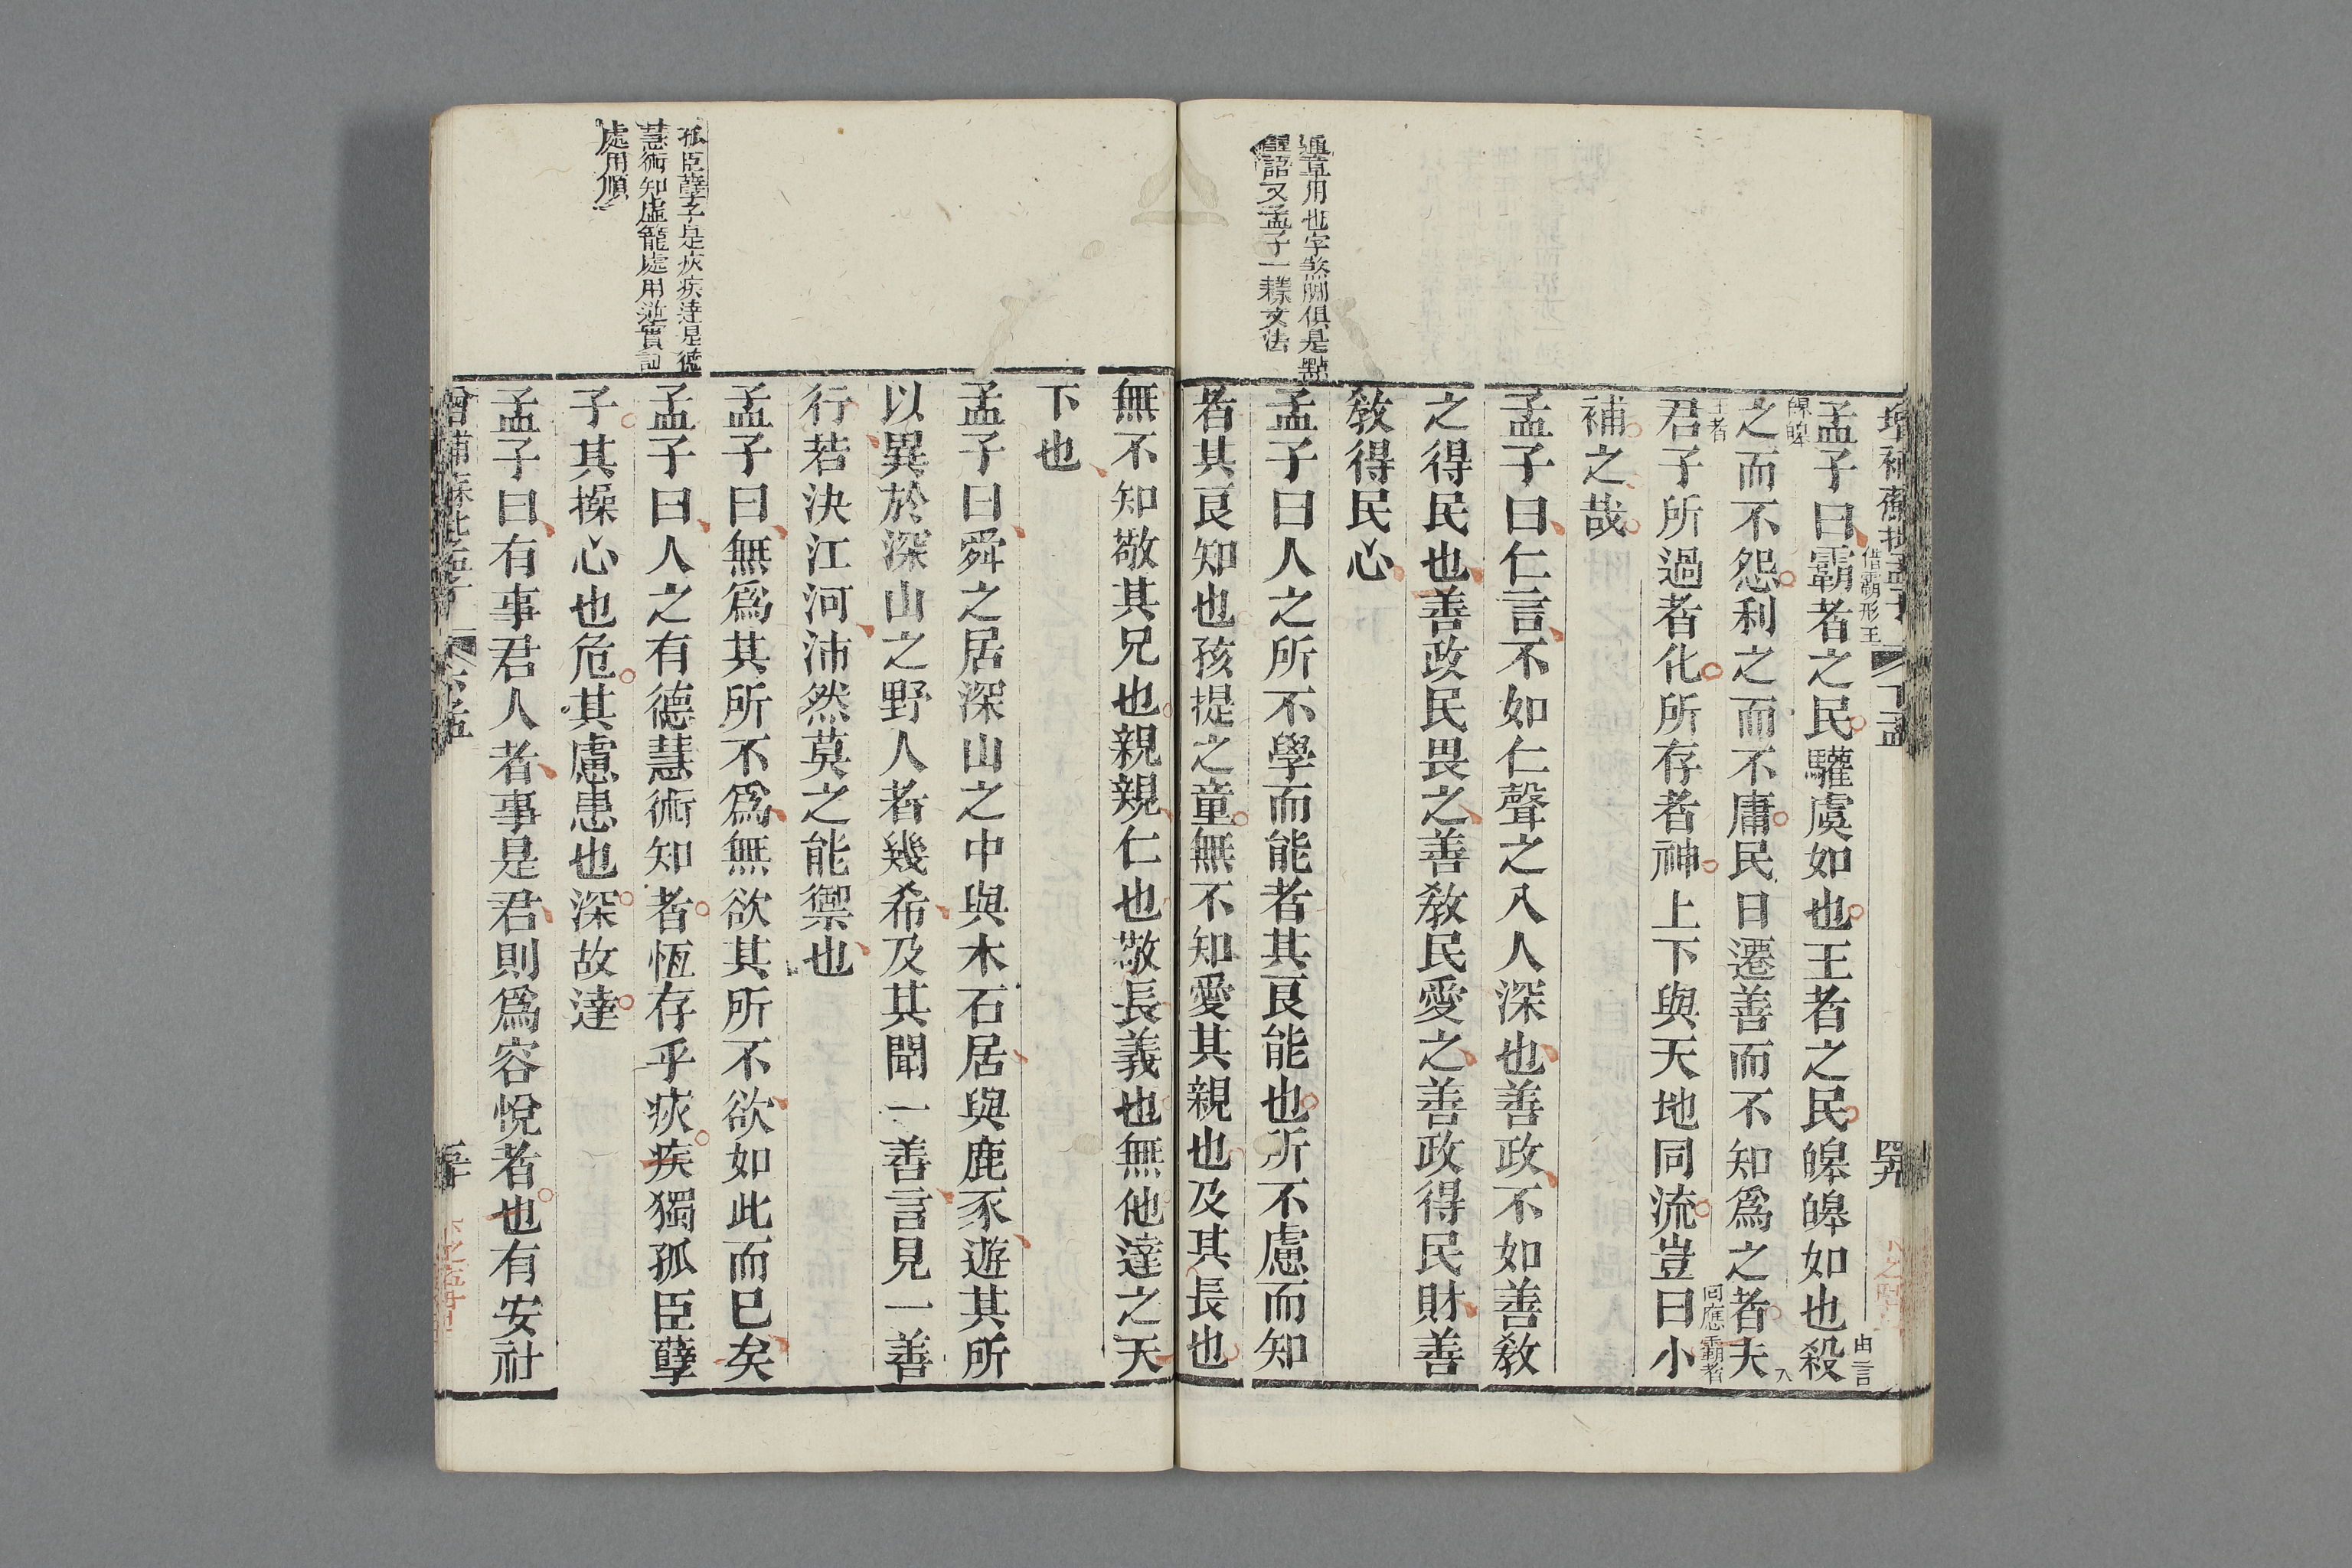 通章用也字煞脚俱是點
醒語又孟子一樣文法
孟子曰霸者之民驩虞如也王者之民皞皞如也殺
借霸形王
由言
皞皞
之而不怨利之而不庸民日遷善而不知爲之者夫
入
王者
君子所過者化所存者神上下與天地同流豈曰小
回應霸者
補之哉
孟子曰仁言不如仁聲之入人深也善政不如善教
之得民也善政民畏之善教民愛之善政得民財善
教得民心
孟子曰人之所不學而能者其良能也所不慮而知
者其良知也孩提之童無不知愛其親也及其長也
無不知敬其兄也親親仁也敬長義也無他達之天
下也
孟子曰舜之居深山之中與木石居與鹿豕遊其所
以異於深山之野人者幾希及其聞一善言見一善
行若決江河沛然莫之能禦也
孟子曰無爲其所不爲無欲其所不欲如此而已矣
孤臣孼子是疢疾達是德
慧術知虛籠處用逆實詞
處用順
孟子曰人之有德慧術知者恆存乎疢疾獨孤臣孽
子其操心也危其慮患也深故達
孟子曰有事君人者事是君則爲容悅者也有安社